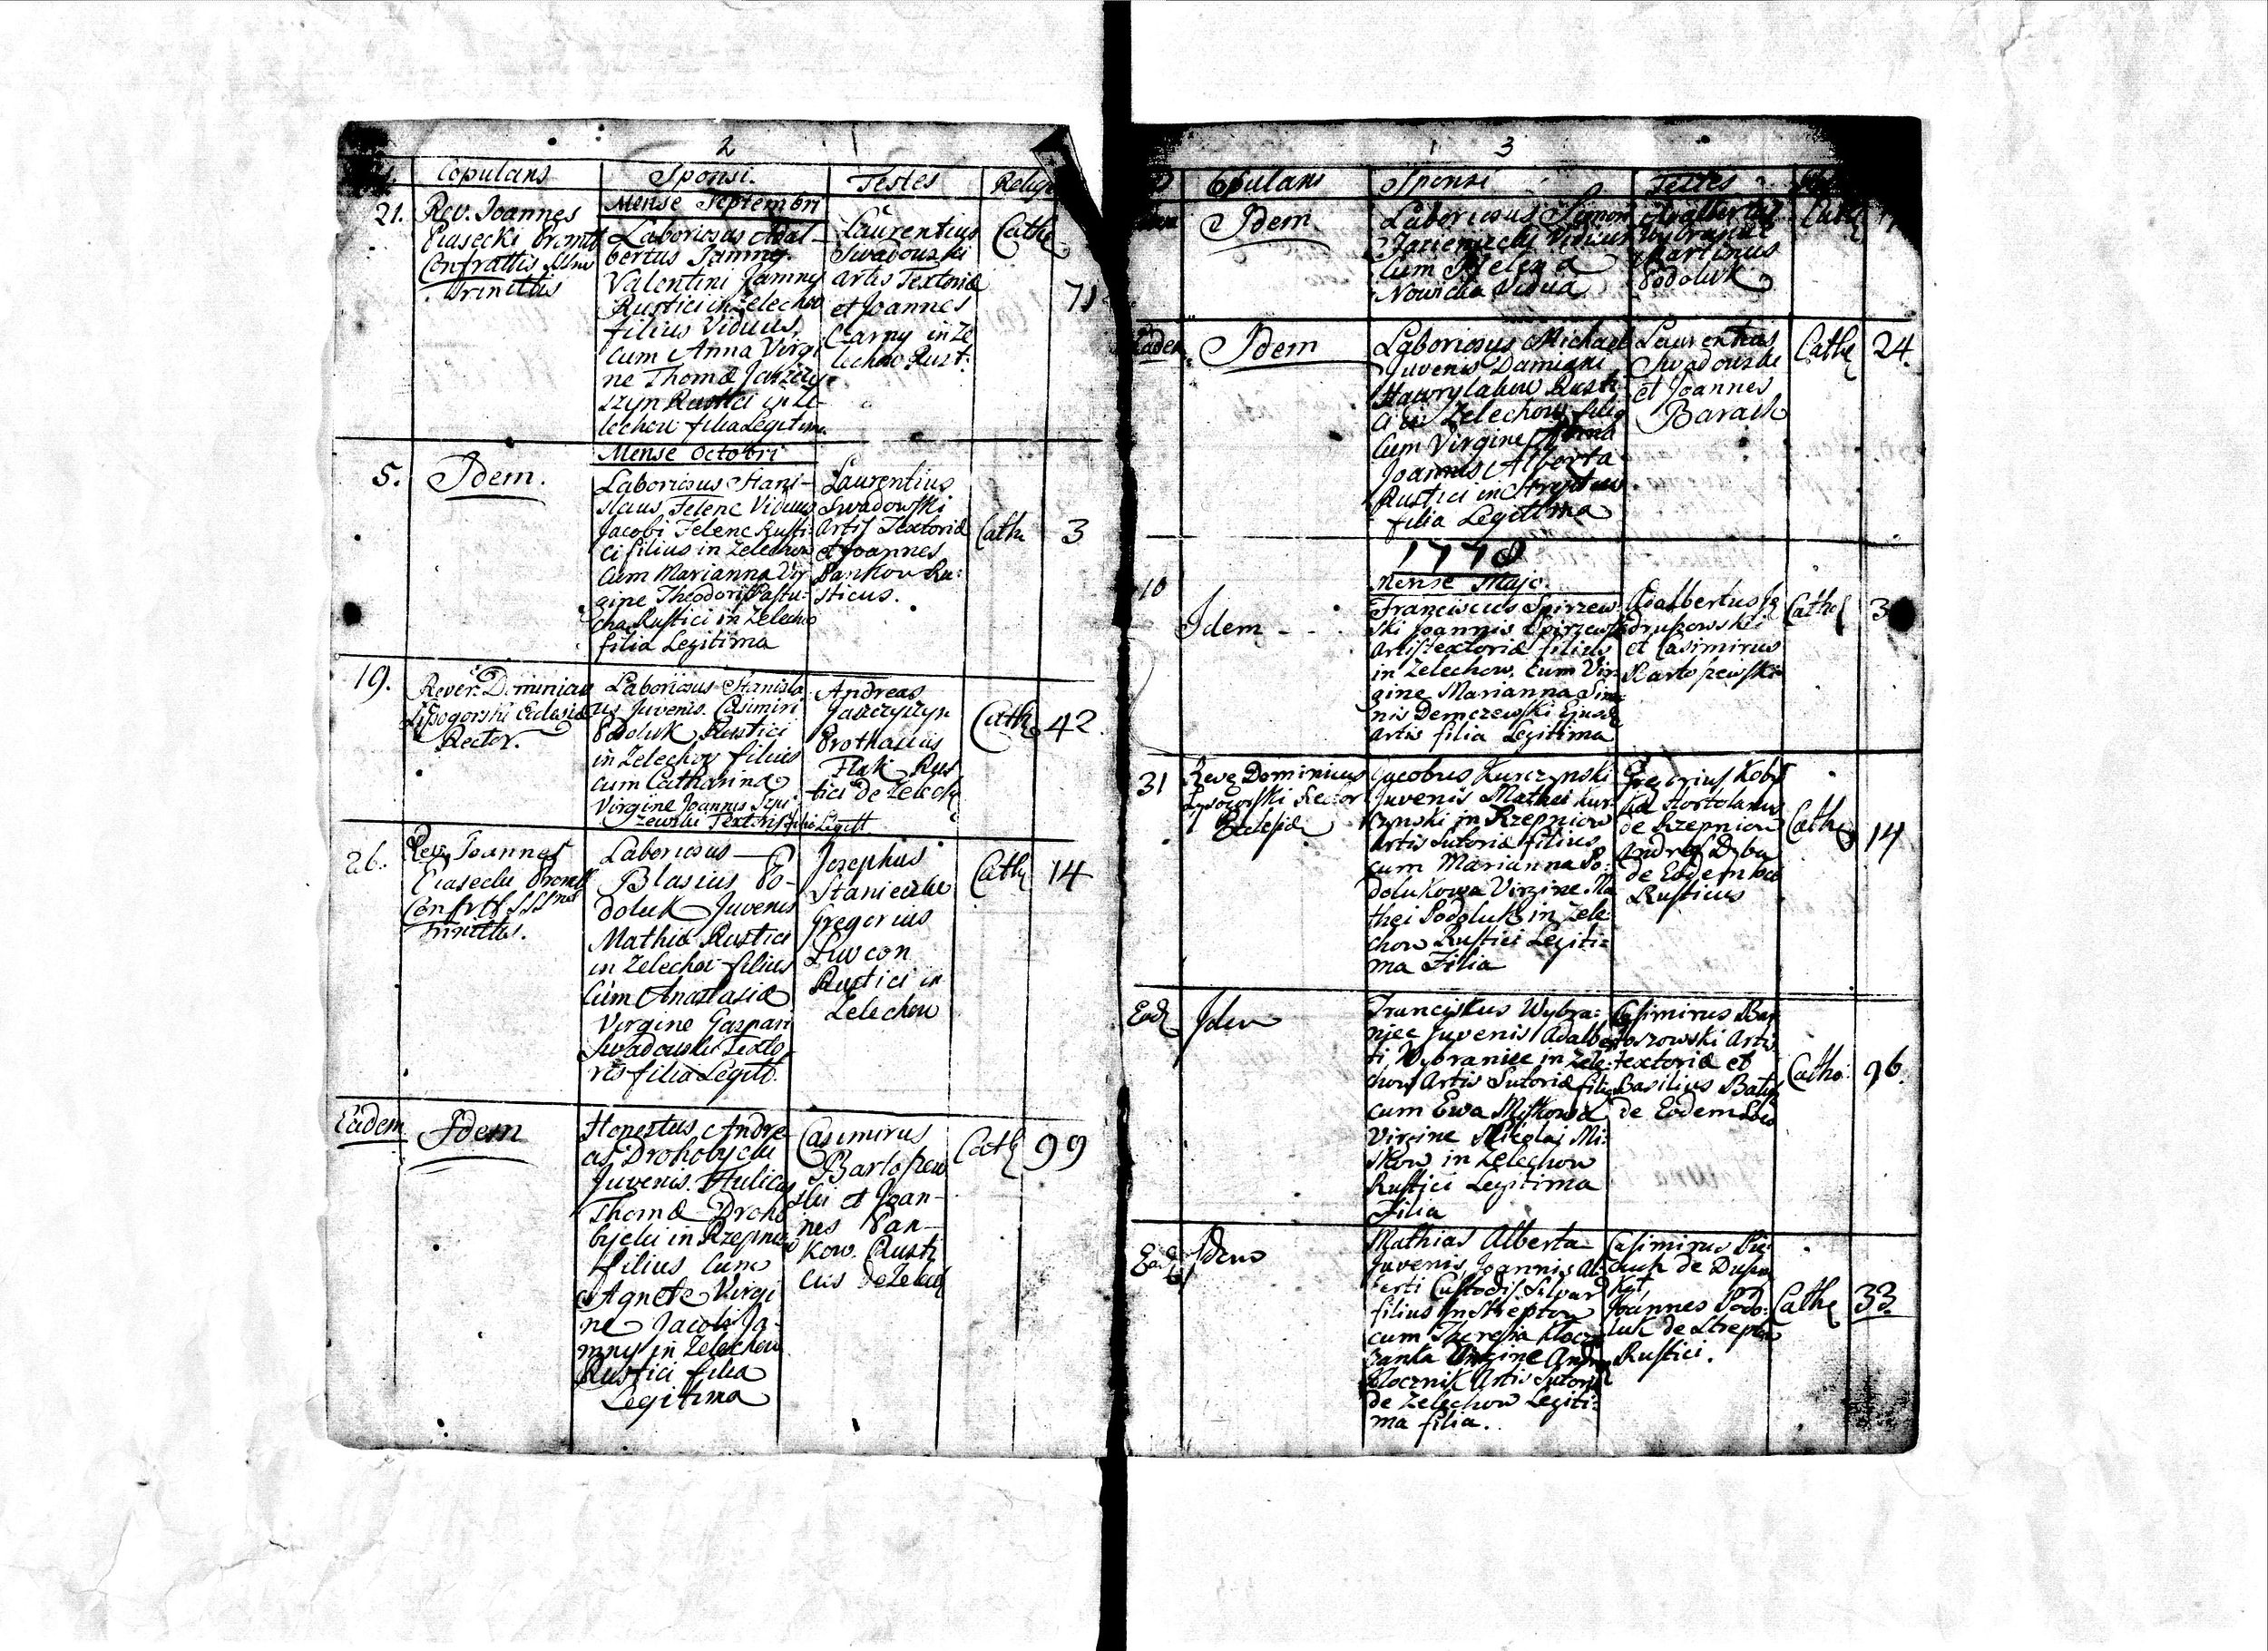 2
Copulans Sponsi. Testes Relig
Mense Septembri
21. Rev. Joannes
Piasecki Promtt
Confrattis SSmæ
Trinittis
Laboriosus Adal-
bertus Jamny.
Valentini Jamny
Rustici in Zelechow
filius Viduus,
cum Anna Virgi
ne Thomæ Jaszczy
szyn Rustici in Ze-
lechow filia Legitima
Laurentius
Swadowski
artis Textoriæ
et Joannes
Czarny in Ze
lechow Rust:
Cath
71
Mense Octobri
5. Idem.
Laboriosus Stani-
slaus Telenc Viduus
Jacobi Telenc Rusti
ci filius in Zelechow
cum Marianna Vir
gine Theodori Pastu-
cha Rustici in Zelechow
filia Legitima
Laurentius
Swadowski
Artis Textoriæ
et Joannes
Pankow Ru:
sticus.
Cath
3
19. Rever: Dominicus
Lyssogorski Eclesiæ
Rector.
Laboriosus Stanisla
us Juvenis. Casimiri
Podoluk Rustici
in Zelechow filius
cum Catharina
Virgine Joannis
Textoris filia Legitt.
Andreas
Jaszczyszyn
Prothasius
Flak Rus
tici de Zelech
Cath
42.
26. Rev. Joannes
Piasecki Promtt
Confrtt SSSmæ
Trinittis.
Laboriosus
Blasius Po-
doluk Juvenis
Mathiæ Rustici
in Zelechow filius
Cum Anastasia
Virgine Gaspari
Swadowski Texto
ris filia Legitt.
Josephus
Staniewski
Gregorius
Luucon
Rustici in
Zelechow
Cath
14
Eadem Idem
Honestus Andre
as Drohobycki
Juvenis. Aulicus
Thomæ Droho
bycki in Rzepniow
filius Cum
Agnete Virgi
ne Jacobi Ja-
mny in Zelechow
Rustici filia
Legitima
Casimirus
Bartoszew
ski et Joan-
nes Pan-
kow. Rusti
cus de Zelech
Cath
99
3
Copulans Sponsi Testes
Idem
Laboriosus Simon
Viduus
Cum Helena
Nowicka Vidua
Adalbertus
Wybraniec
Martinus
Podoluk
Cath
Eadem Idem
Laboriosus Michael
Juvenis Damiani
Hawrylakow Rusti
ci in Zelechow filiq
Cum Virgine Anna
Joannis Alberta
Rustici in Streptow
filia Legittima
Laurentius
Swadowski
et Joannes
Baraik
Cath
24.
1778
Mense Majo.
10 Idem
Franciscus Spirzew
ski Joannis Spirzewsk
artis textoriæ filius
in Zelechow. Cum Vir
gine Marianna Simo
nis Demczewski Ejusd
artis filia Legitima
Adalbertus
et Casimirus
Bartoszewski
Cath
3
31 Reve Dominicus
Lysogorski Rector
Eclesiæ
Jacobus Kurczynski
Juvenis Mathei Kur
czynski in Rzepniow
Artis Sutoriæ filius
cum Marianna Po
dolukowa Virgine Ma
thei Podoluk in Zele
chow Rustici Legiti:
ma Filia
Gregorius Kobyl
ka Hortolanus
de Rzepniow
Andreas Dyba
de Eodem loco
Rusticus
Cath
14
Ead Idem
Franciskus Wybra:
niec Juvenis Adalber
ti Wybraniec in Zele:
chow Artis Sutoriæ filiq
cum Ewa Miskowa
Virgine Nikolai Mi:
skow in Zelechow
Rustici Legitima
Filia
Casimirus Bar
toszowski Artis
textoriæ et
Basilius Batig
de Eodem Loco
Catho:
96.
Ead Idem
Mathias Alberta
Juvenis Joannis Al:
berti Custodis Silvar
filius in Streptow
cum Theresia Klocz
zanka Virgine Andre
Klocznik Artis Sutori
de Zelechow Legiti:
ma filia.
Casimirus
Joannes Podo:
luk de Streptow
Rustici.
Cath
33